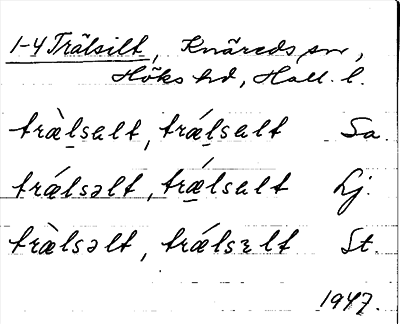 1-4 Trälsilt, Knäreds sn,
Höks hd, Hall. l.
træ̀l̠sɐlt, trǽl̠sɐlt Sa.
trǽlsəlt, trǽ̠lsɐlt Lj.
træ̀lsəlt, trǽlsɛlt St.
1947.